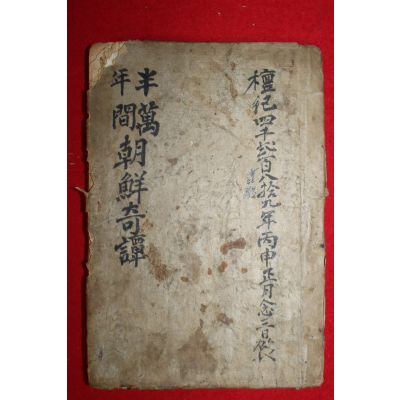 檀紀四千弍百八拾九年丙申正月念三日
半萬年間朝鮮奇譚